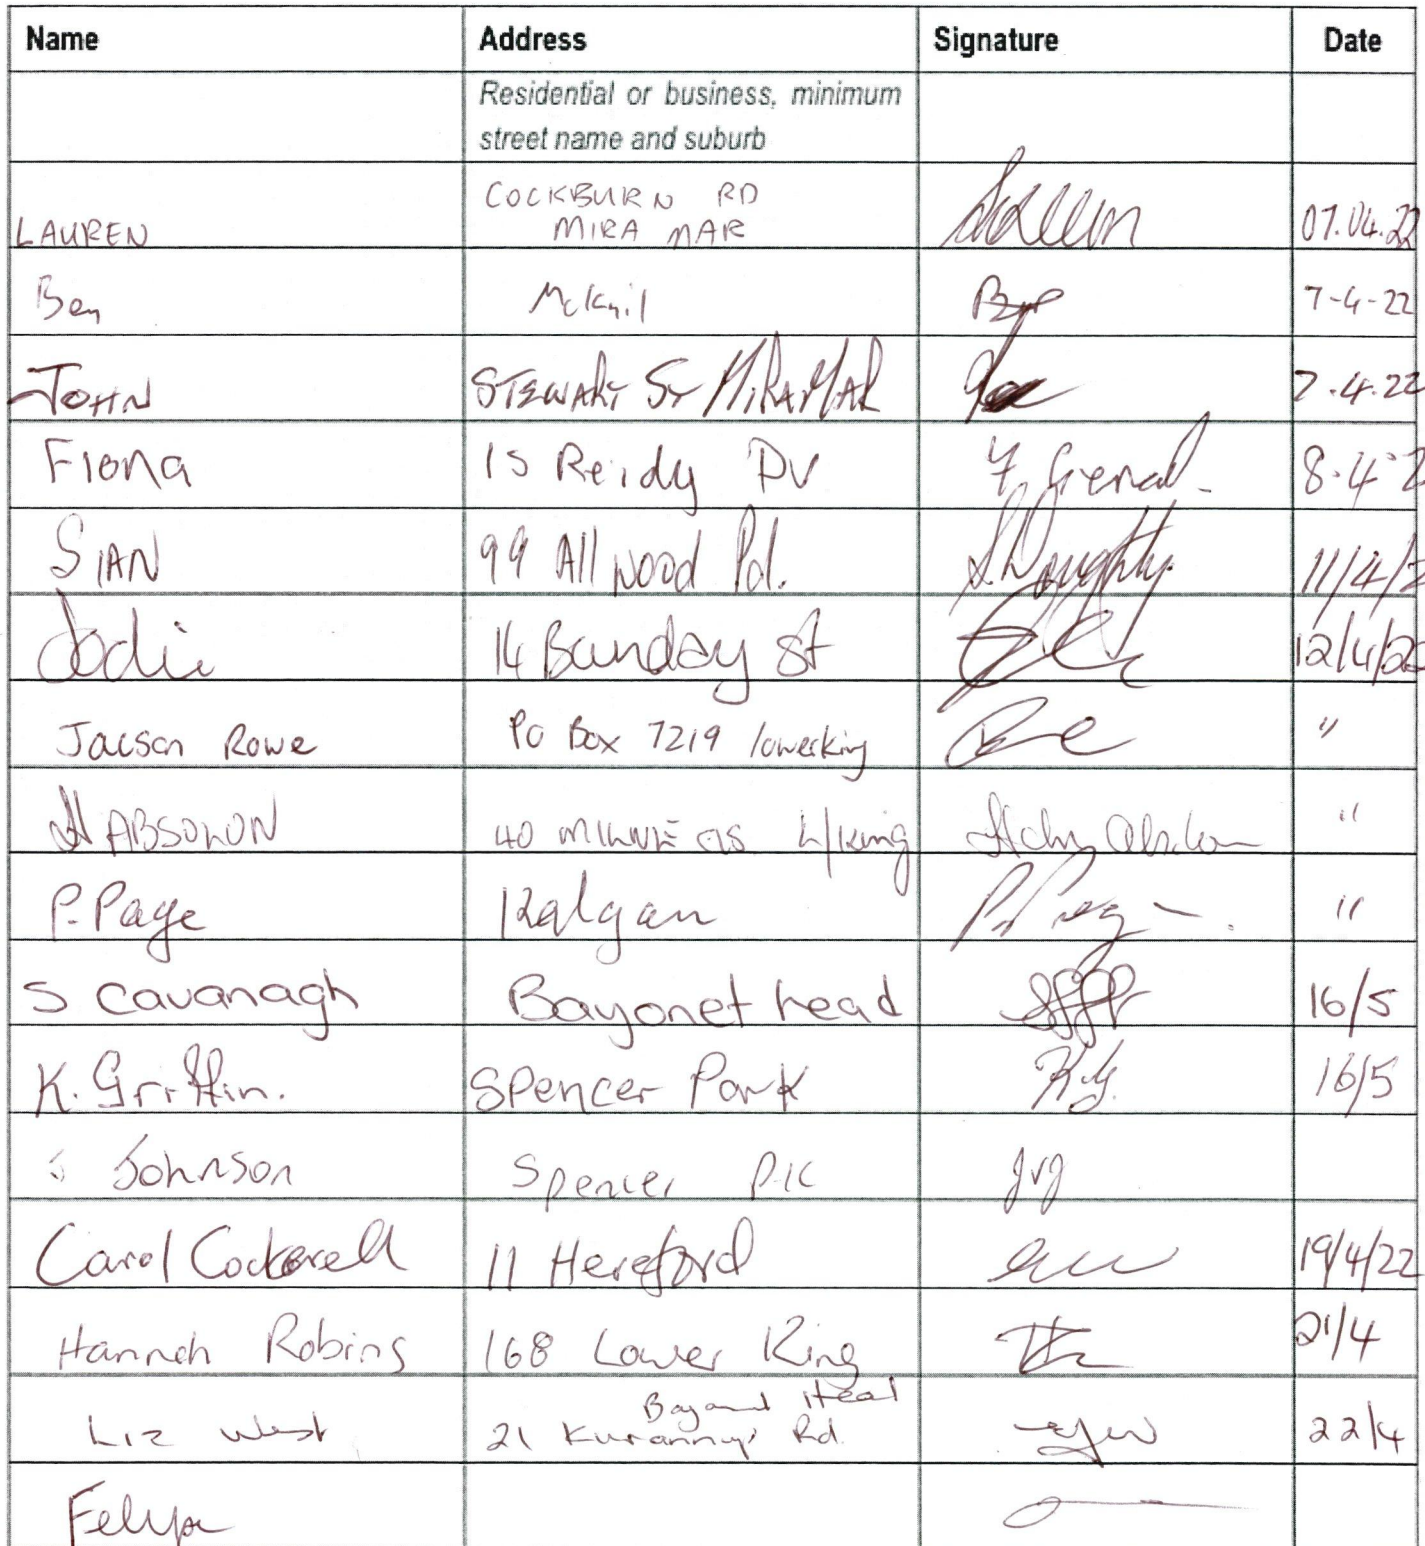 Name Address Signature Date
Residential or business, minimum
street name and suburb
COCKBURN RD
LAUREN MIRA MAR 07.04.22
Ben McKail 7-4-22
JOHN STEWART ST MIRA MAR 7.4.22
Fiona 15 Reidy DV 8.4.2
SIAN 99 Allwood Pd. S.Doughty. 11/4/2
Jodie 14 Bunday St 12/4/22
Jacson Rowe PO Box 7219 lowerking "
ABSOLON 40 L/King "
P. Page Kalgan P. Page "
S Cavanagh Bayonet head 16/5
K. Griffin. Spencer Park K.G. 16/5
J Johnson Spencer PK JVJ
Carol Cockerell 11 Hereford 19/4/22
Hannah Robins 168 Lower King 21/4
Bayonet Head
Liz West 21 Rd. 22/4
Felipe